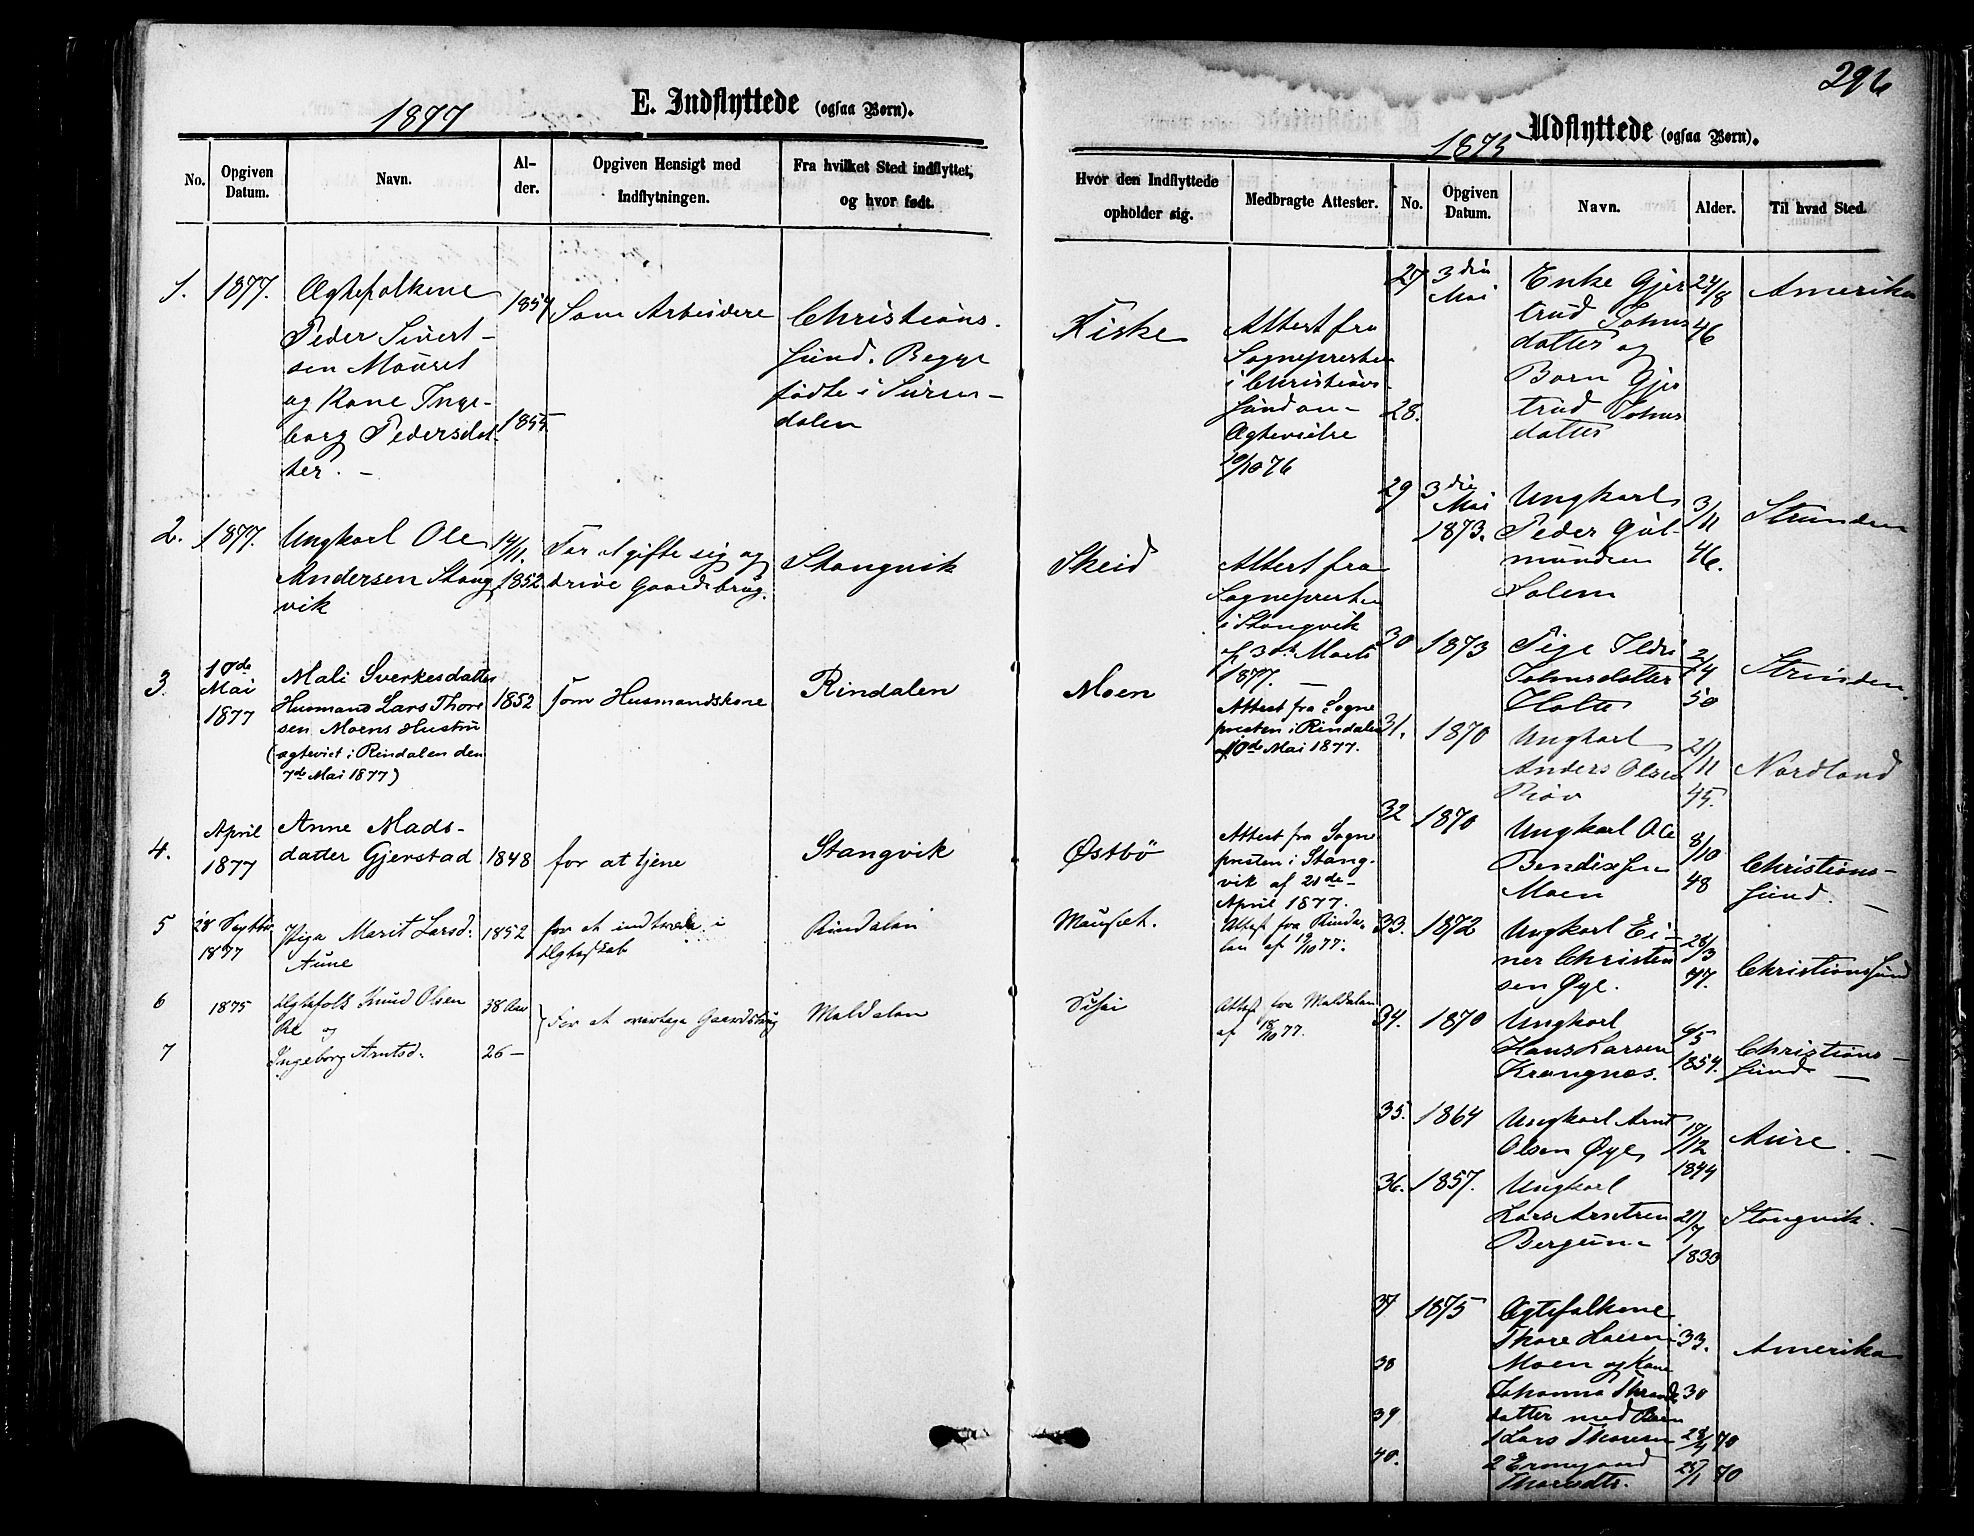 296
1877
E. Indflyttede (ogsaa Børn).
No.
Opgiven Datum.
Navn.
Al-
der.
Opgiven Hensigt med
Indflytningen.
Fra hvilket Sted indflyttet,
og hvor født.
Hvor den Indflyttede
opholder sig.
Medbragte Attester.
1. 1877. Ægtefolkene
Peder Sivert-
sen
og Kone Inge-
borg Pedersdat-
ter. -
1854
1855
Som Arbeidere
Christians-
sund. Begge
fødte i Suren-
dalen
Kiske
Attest fra
Sognepresten
i Christians-
sund om
10/10 76
2. 1877. Ungkarl Ole
Andersen Stang
vik
14/11.
1852
For at gifte sig og
drive Gaardsbrug.
Stangvik
Skeid
Attest fra
Sognepresten
i Stangvik
Marts
1877. -
3. 10de
Mai
1877
Mali Sverkesdatter
Husmand Lars Thore
sen Moens Hustru
(ægteviet i Rindalen den
7de Mai 1877)
1852
som Husmandskone
Rindalen
Moen
Attest fra Sogne
presten i Rindalen
af 10de Mai 1877.
4. April
1877
Anne Mads-
datter Gjerstad
1848
for at tjene
Stangvik
Østbö
Attest fra Sogne
presten i Stang-
vik af 21de
April 1877.
5 28 Septbr
1877
Pige Marit Larsd.
Aune
1852
for at indtræde i
Ægteskab
Rindalen
Mauset.
Attest fra Rinda-
len af 19/10 77.
6 1875
Ægtefolk Knud Olsen
og
38 Aar
7 Ingeborg Arntsd.
26 -
For at overtage Gaardsbrug
Maldalen
Attest fra Maldalen
af 18/10 77.
1873
Udflyttede (ogsaa Børn).
No.
Opgiven
Datum.
Navn.
Alder.
Til hvad Sted.
27 3die
Mai
Enke Gjer
trud Johns
datter og
24/8
46
Amerika
28. Barn Gjer
trud Johns
datter
29 3die
Mai
1873.
Ungkarl
Peder Gul-
mundsen
Solem
3/11
46.
Strinden
30 1873 Pige
Johnsdatter
Holte
2/4
50
Strinden.
31. 1870 Ungkarl
Anders Olsen
Røv
21/11
45.
Nordland
32 1870 Ungkarl Ole
Bendixsen
Moen
8/10
48
Christians-
sund. -
33. 1872 Ungkarl Ei-
ner Christen
sen Øye.
28/3
47.
Christianssund
34. 1870 Ungkarl
Hans Larsen
Krangnes.
1854.
Christians-
sund -
35. 1864 Ungkarl Arnt
Olsen Øye
19/12
1844
Aure. -
36. 1857. Ungkarl
Lars Arntsen
Bergum
21/7
1833
Stangvik. -
37 1875 Ægtefolkene
Thore Larsen
33.
Amerika
38 Moen og Kone
Johanna
30
39 datter med Børn
1 Lars Thoresen
28/4 70
40. 2
Thoresdtr.
25/1 70